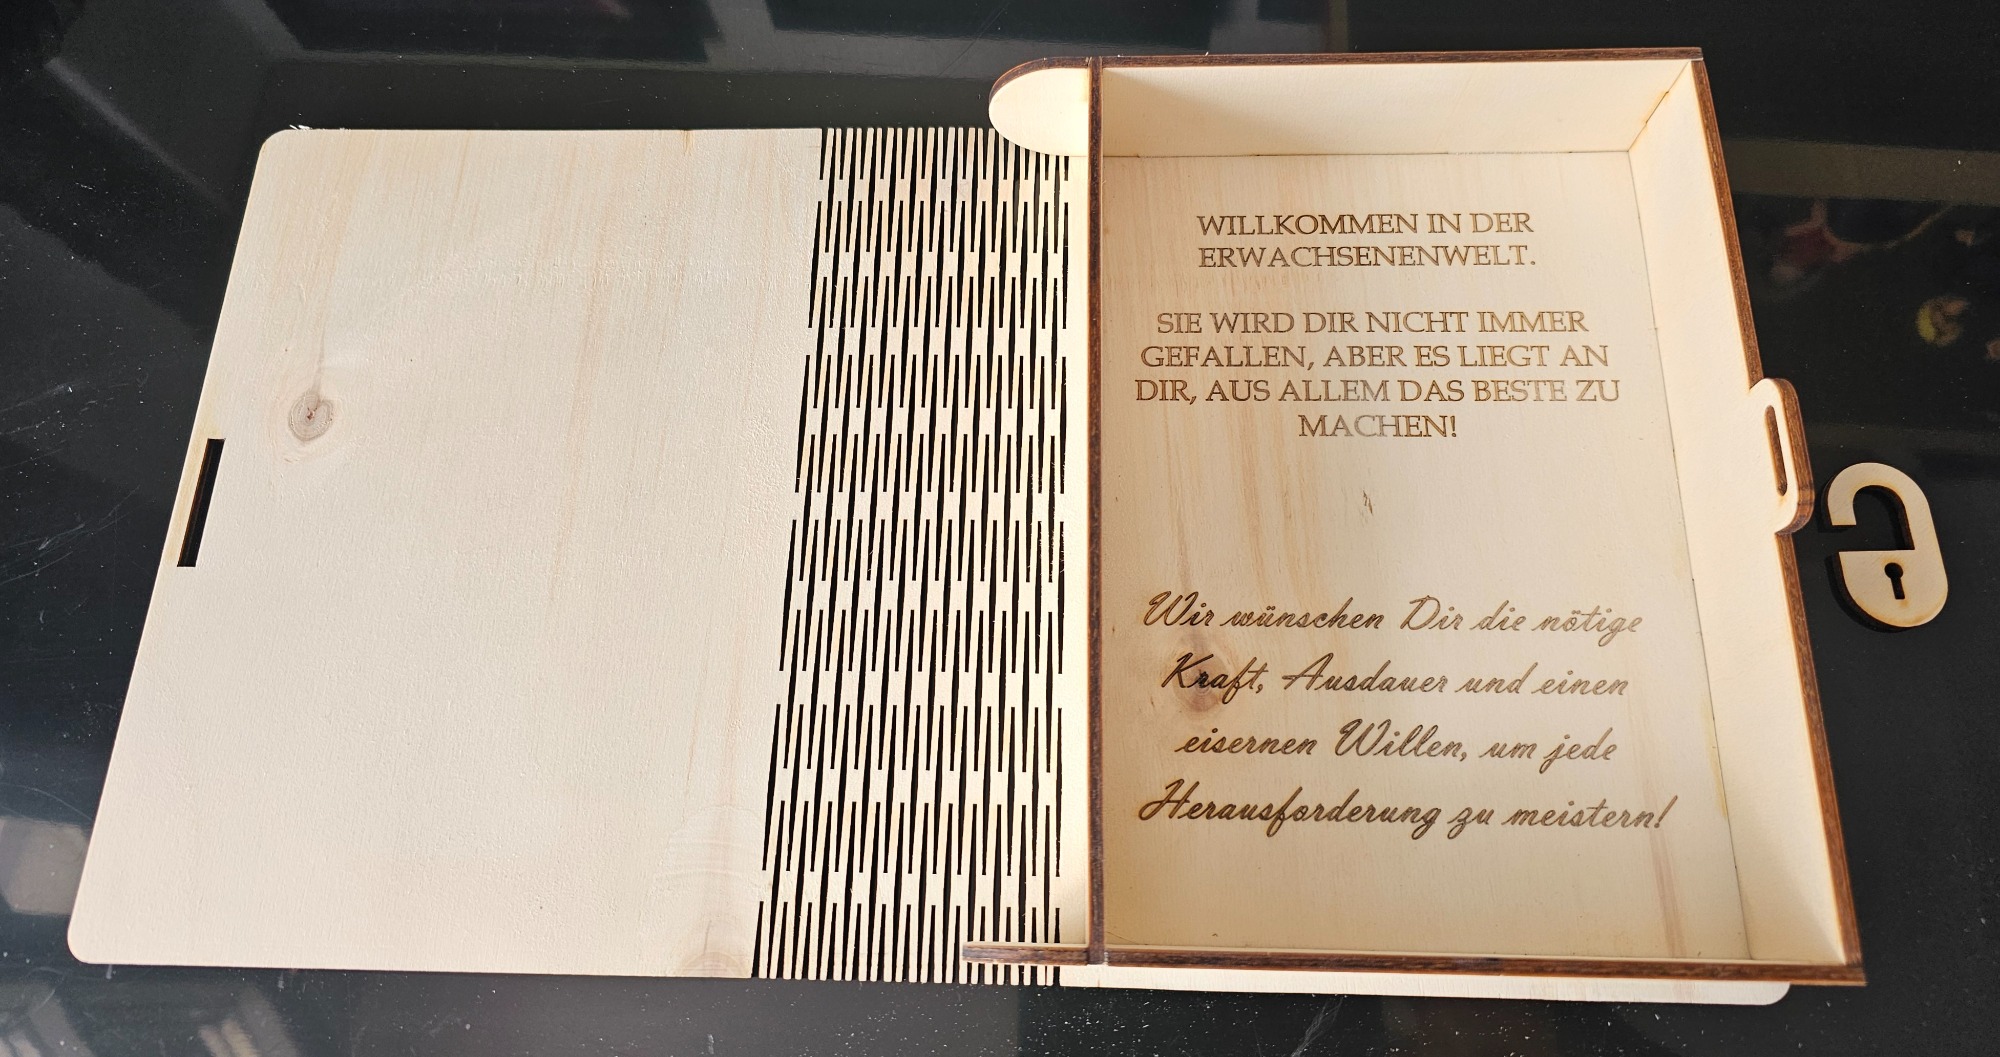 WILLKOMMEN IN DER
ERWACHSENENWELT.
SIE WIRD DIR NICHT IMMER
GEFALLEN, ABER ES LIEGT AN
DIR, AUS ALLEM DAS BESTE ZU
MACHEN!
Wir wünschen Dir die nötige
Kraft, Ausdauer und einen
eisernen Willen, um jede
Herausforderung zu meistern!